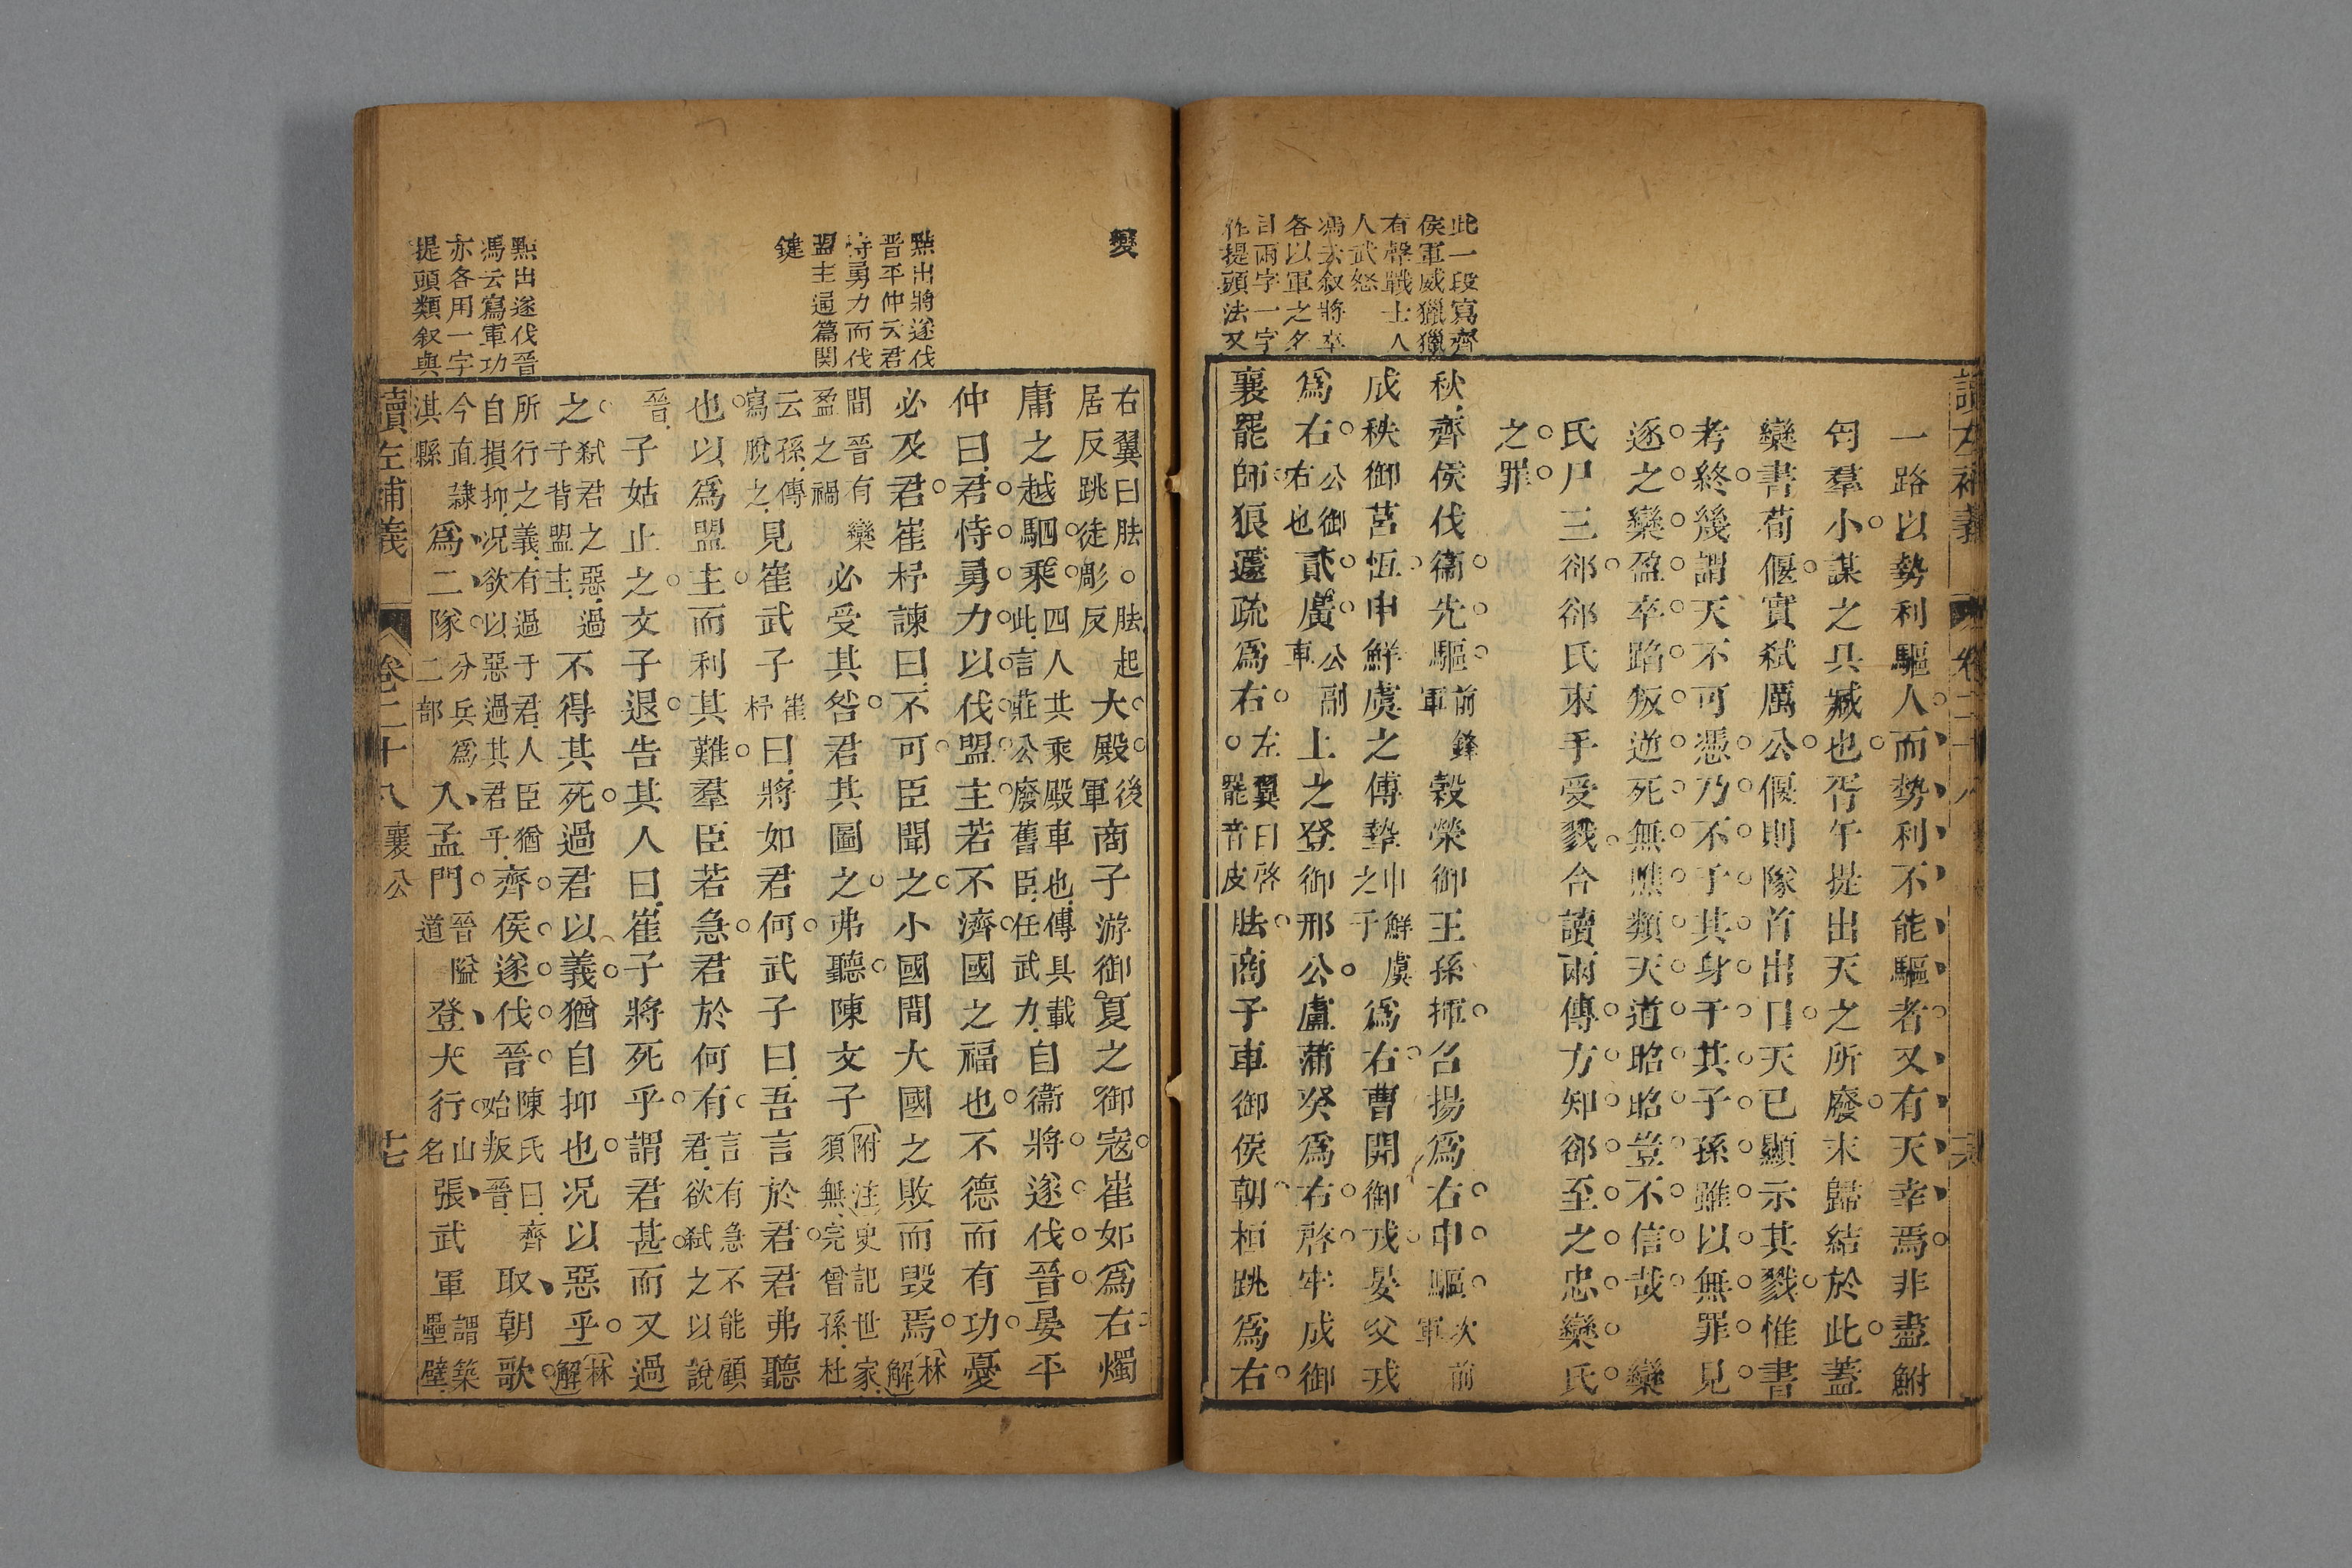 此一段寫齊
侯軍威獵獵
有聲戰士人
人武怒
馮云叙將卒
各以軍之名
目兩字一字
作提頭法又
讀左補義 卷二十八 共
一路以勢利驅人而勢利不能驅者又有天幸焉非盡鮒
匄羣小謀之具臧也胥午提出天之所廢末歸結於此蓋
欒書荀偃實弒厲公偃則隊首出口天已顯示其戮惟書
考終幾謂天不可憑乃不于其身于其子孫雖以無罪見
逐之欒盈卒蹈叛逆死無噍類天道昭昭豈不信哉欒
氏尸三郤郤氏束手受戮合讀兩傳方知郤至之忠欒氏
之罪
秋齊侯伐衞先驅前鋒軍穀榮御王孫揮召揚爲右申驅次前軍
成秩御莒恆申鮮虞之傅摯申鮮虞之子爲右曹開御戎晏父戎
爲右公御右也貳廣公副車上之登御邢公盧蒲癸爲右啓牢成御
襄罷師狼蘧疏爲右左翼曰啓罷音皮胠商子車御侯朝桓跳爲右
變
點出將遂伐
晉平仲云君
恃勇力而伐
盟主通篇関
鍵
點出遂伐晉
馮云寫軍功
亦各用一字
提頭類叙與
右翼曰胠胠起居反跳徒彫反大殿後軍商子游御夏之御寇崔如爲右燭
庸之越駟乘四人共乘殿車也傳具載此言莊公廢舊臣任武力自衞將遂伐晉晏平
仲曰君恃勇力以伐盟主若不濟國之福也不德而有功憂
必及君崔杼諫曰不可臣聞之小國間大國之敗而毀焉林解
間晉有欒盈之禍必受其咎君其圖之弗聽陳文子附注史記世家須無完曾孫杜
云孫傳寫脫之見崔武子崔杼曰將如君何武子曰吾言於君君弗聽
也以爲盟主而利其難羣臣若急君於何有言有急不能顧君欲弒之以說
晉子姑止之文子退告其人曰崔子將死乎謂君甚而又過
之弒君之惡過于背盟主不得其死過君以義猶自抑也况以惡乎林解
所行之義有過于君人臣猶自損抑况欲以惡過其君乎齊侯遂伐晉陳氏曰齊始叛晉取朝歌
今直隸淇縣爲二隊分兵爲二部入孟門晉隘道登大行山名張武軍謂築壘壁
讀左補義 卷二十八 襄公 七